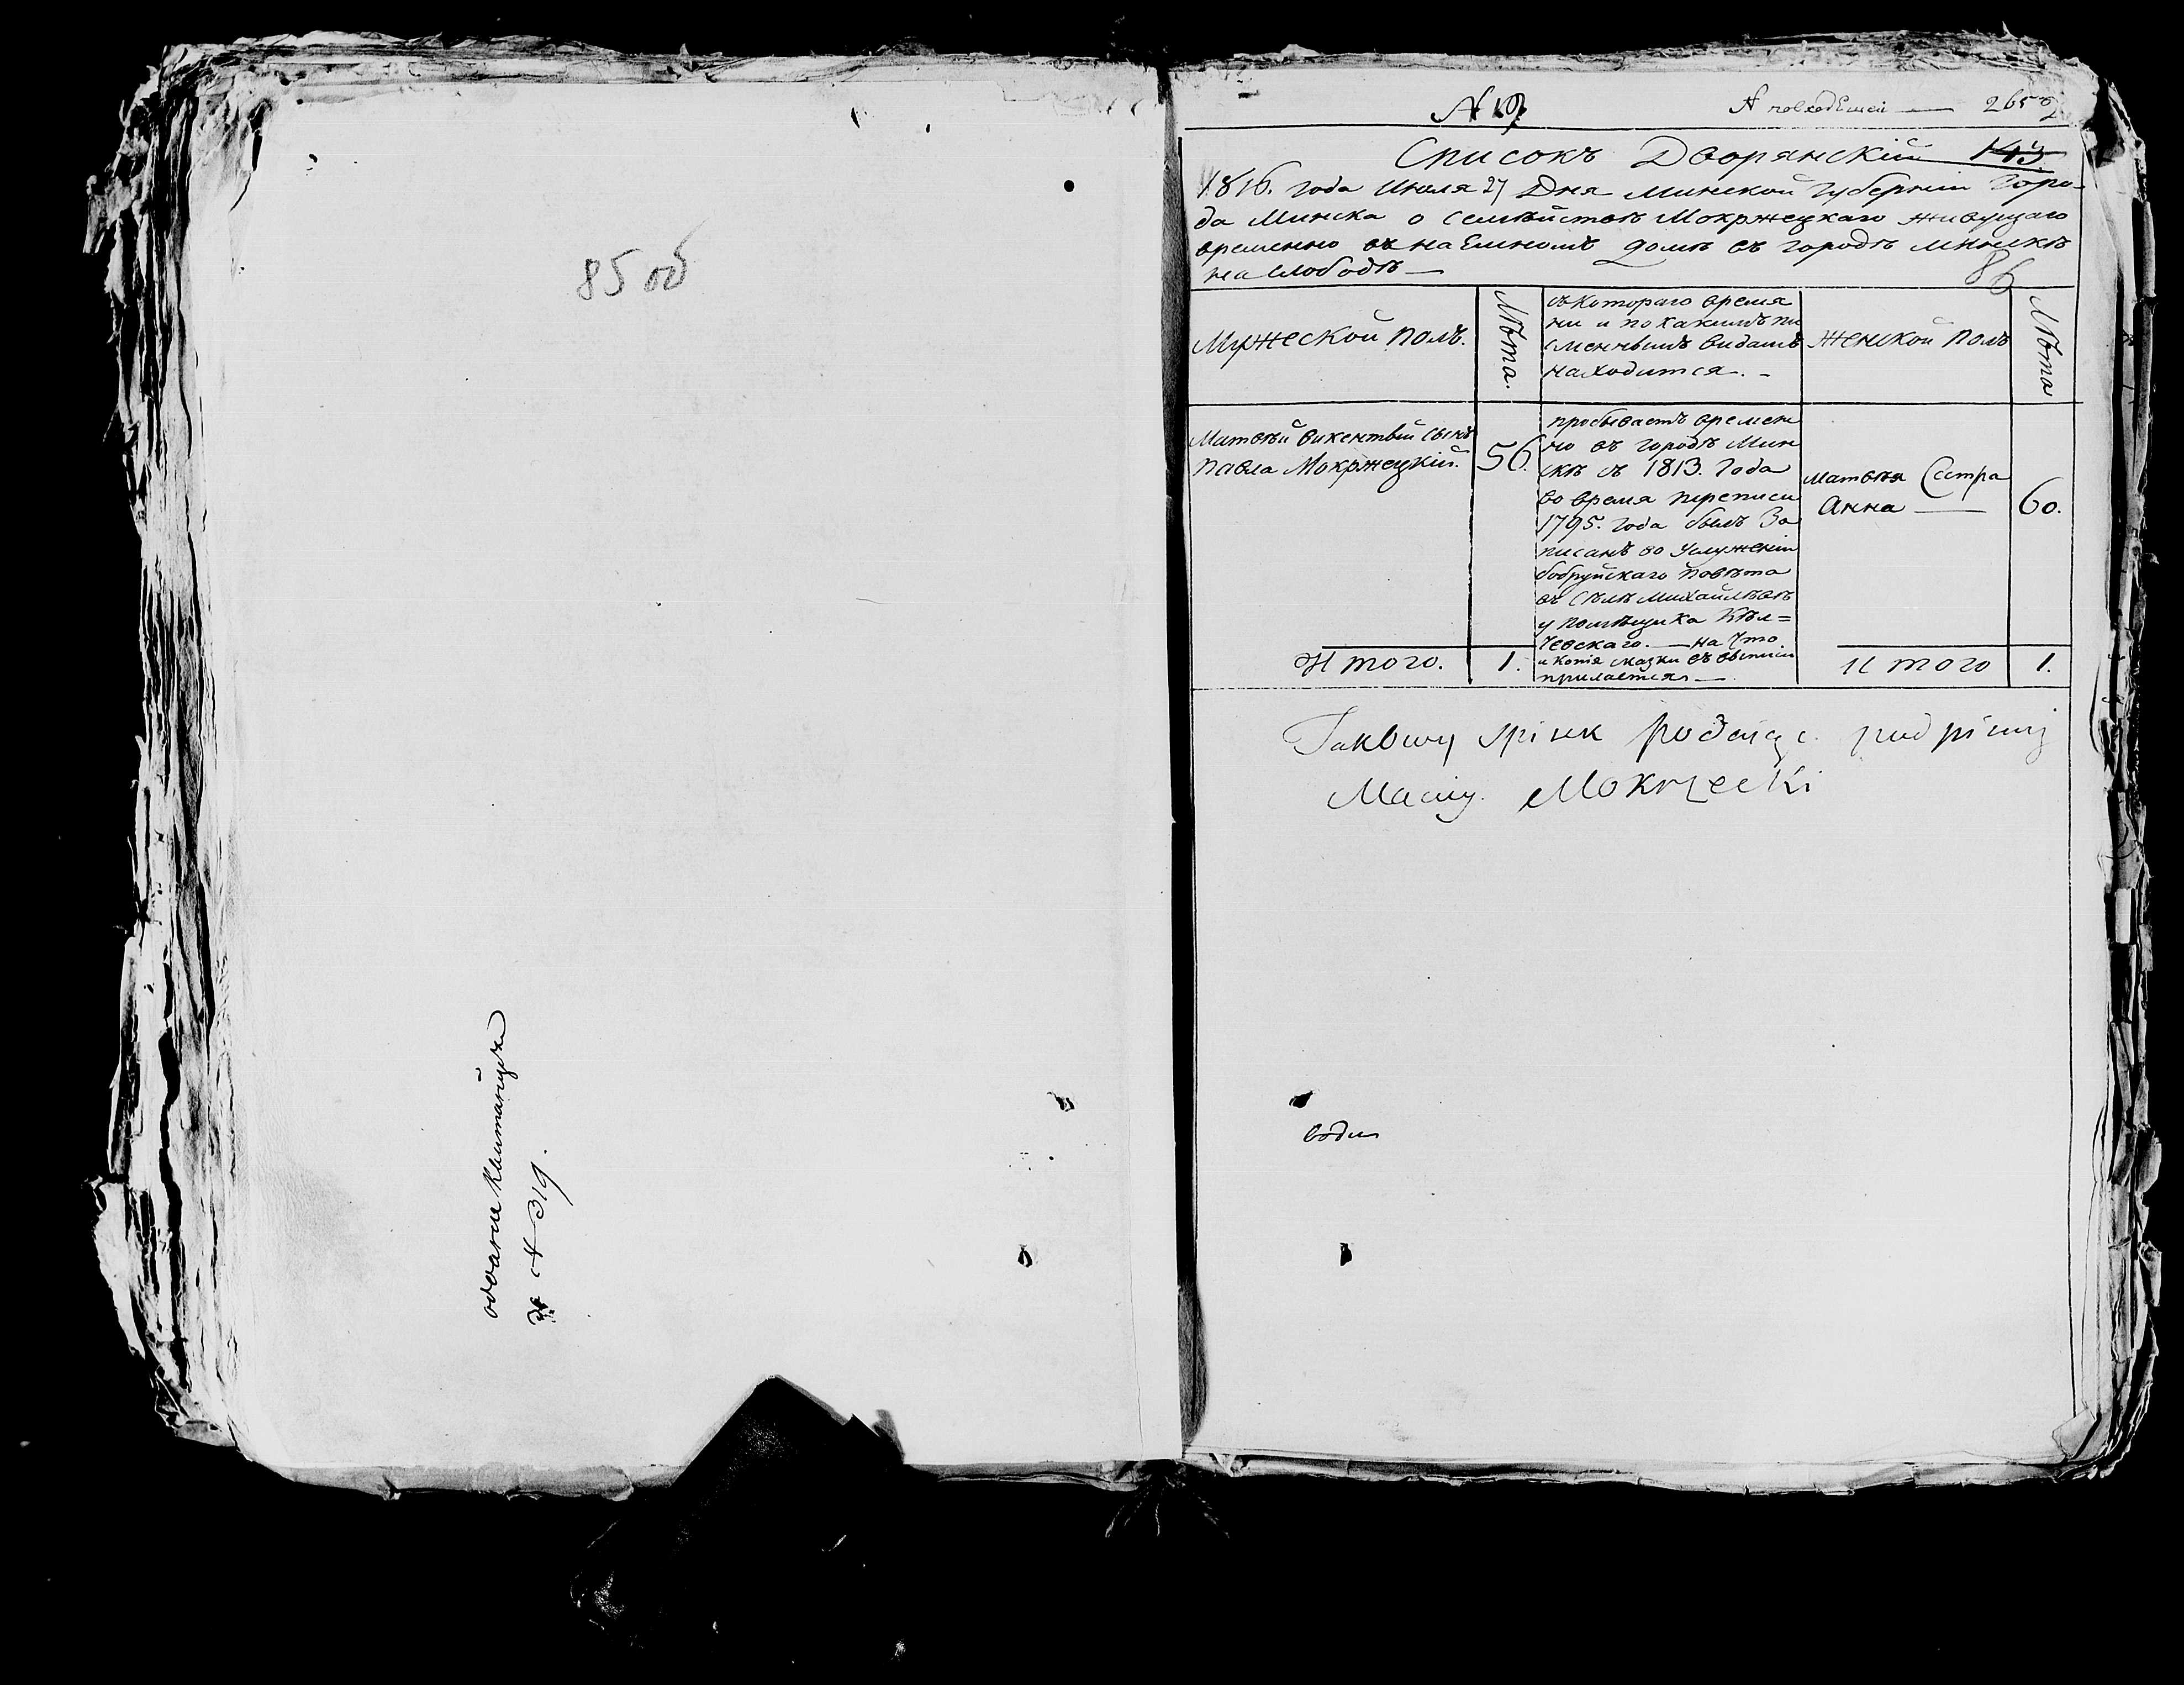 85 об
№ 319.
№ 19.
№ 2652
Списокъ Дворянскій 143
1816. года Июля 27 Дня Минской Губерніи Горо-
да Минска о Семѣйствѣ Мокржецкаго живущаго
временно въ наЕмномъ домѣ въ городѣ Минскѣ
на Слободѣ —
86
Мужеской полъ.
Лѣта.
съ Котораго время
ни и по какимъ пи
сменнымъ видамъ
находится. -
Женской полъ
Лѣта
Матвѣй викентьий сынъ
Павла Мокржецкій.
56.
пробываетъ времен
но въ городѣ Мин
скѣ съ 1813. года
во время переписи
1795. года былъ За
писанъ во Услуженіи
бобруйскаго повѣта
въ Сѣлѣ Михайлѣвѣ
у помѣщика Кѣл=
чевскаго. — на Что
и Копія сказки съ
прилается —
Матвѣя Сестра
Анна —
60.
Итого.
1.
Итого
1.
Takowy spisek podaiąc podpisuię
Maciey Mokrzecki
води